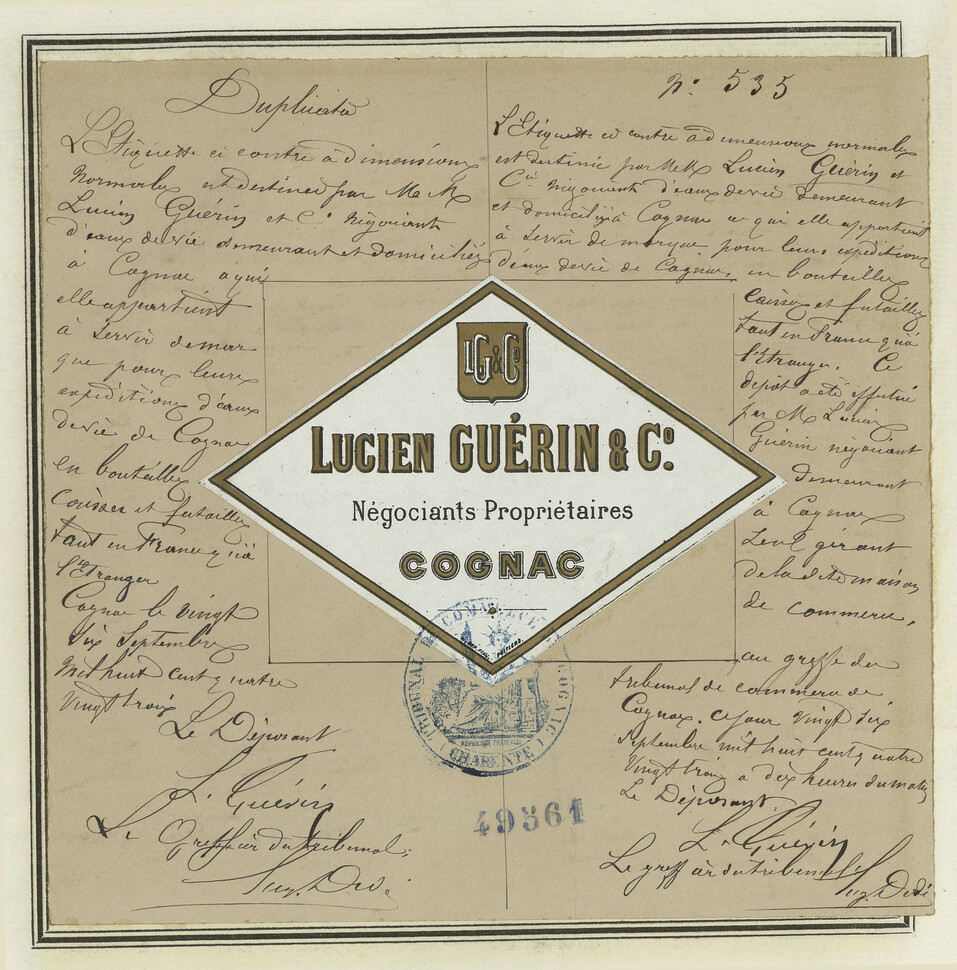 Duplicata
L'Etiquette ci contre à dimensions
normales est destinée par M M
Lucien Guérin et Cie Négociants
d'eaux de vie demeurant et domiciliés
à Cognac a qui
elle appartient
à servir de mar
que pour leurs
expéditions d'eaux
de vie de Cognac
en bouteilles
caisses et futailles
tant en France qu'à
l'Etranger
Cognac le vingt
six Septembre
mil huit cent quatre
vingt trois
Le Déposant
L. Guérin
Le Greffier du tribunal
No 535
L'Etiquette ci contre à dimensions normales
est destinée par M M Lucien Guérin et
Cie Négociants d'eaux de vie demeurant
et domiciliés à Cognac a qui elle appartient
à servir de marque pour leurs expéditions
d'eaux de vie de Cognac, en bouteilles
caisses et futailles
tant en France qu'à
l'étranger. Ce
dépôt a été effectué
par M Lucien
Guérin négociant
demeurant
à Cognac
seul gérant
de la dite maison
de commerce,
au greffe du
tribunal de commerce de
Cognac. ce jour vingt six
septembre mil huit cent quatre
vingt trois a dix heures du matin
Le Déposant
L. Guérin
Le greffier du tribunal
LG&Co
LUCIEN GUÉRIN & Co.
Négociants Propriétaires
COGNAC
TRIBUNAL DE COMMERCE COGNAC
RÉPUBLIQUE FRANÇAISE
(CHARENTE)
49561